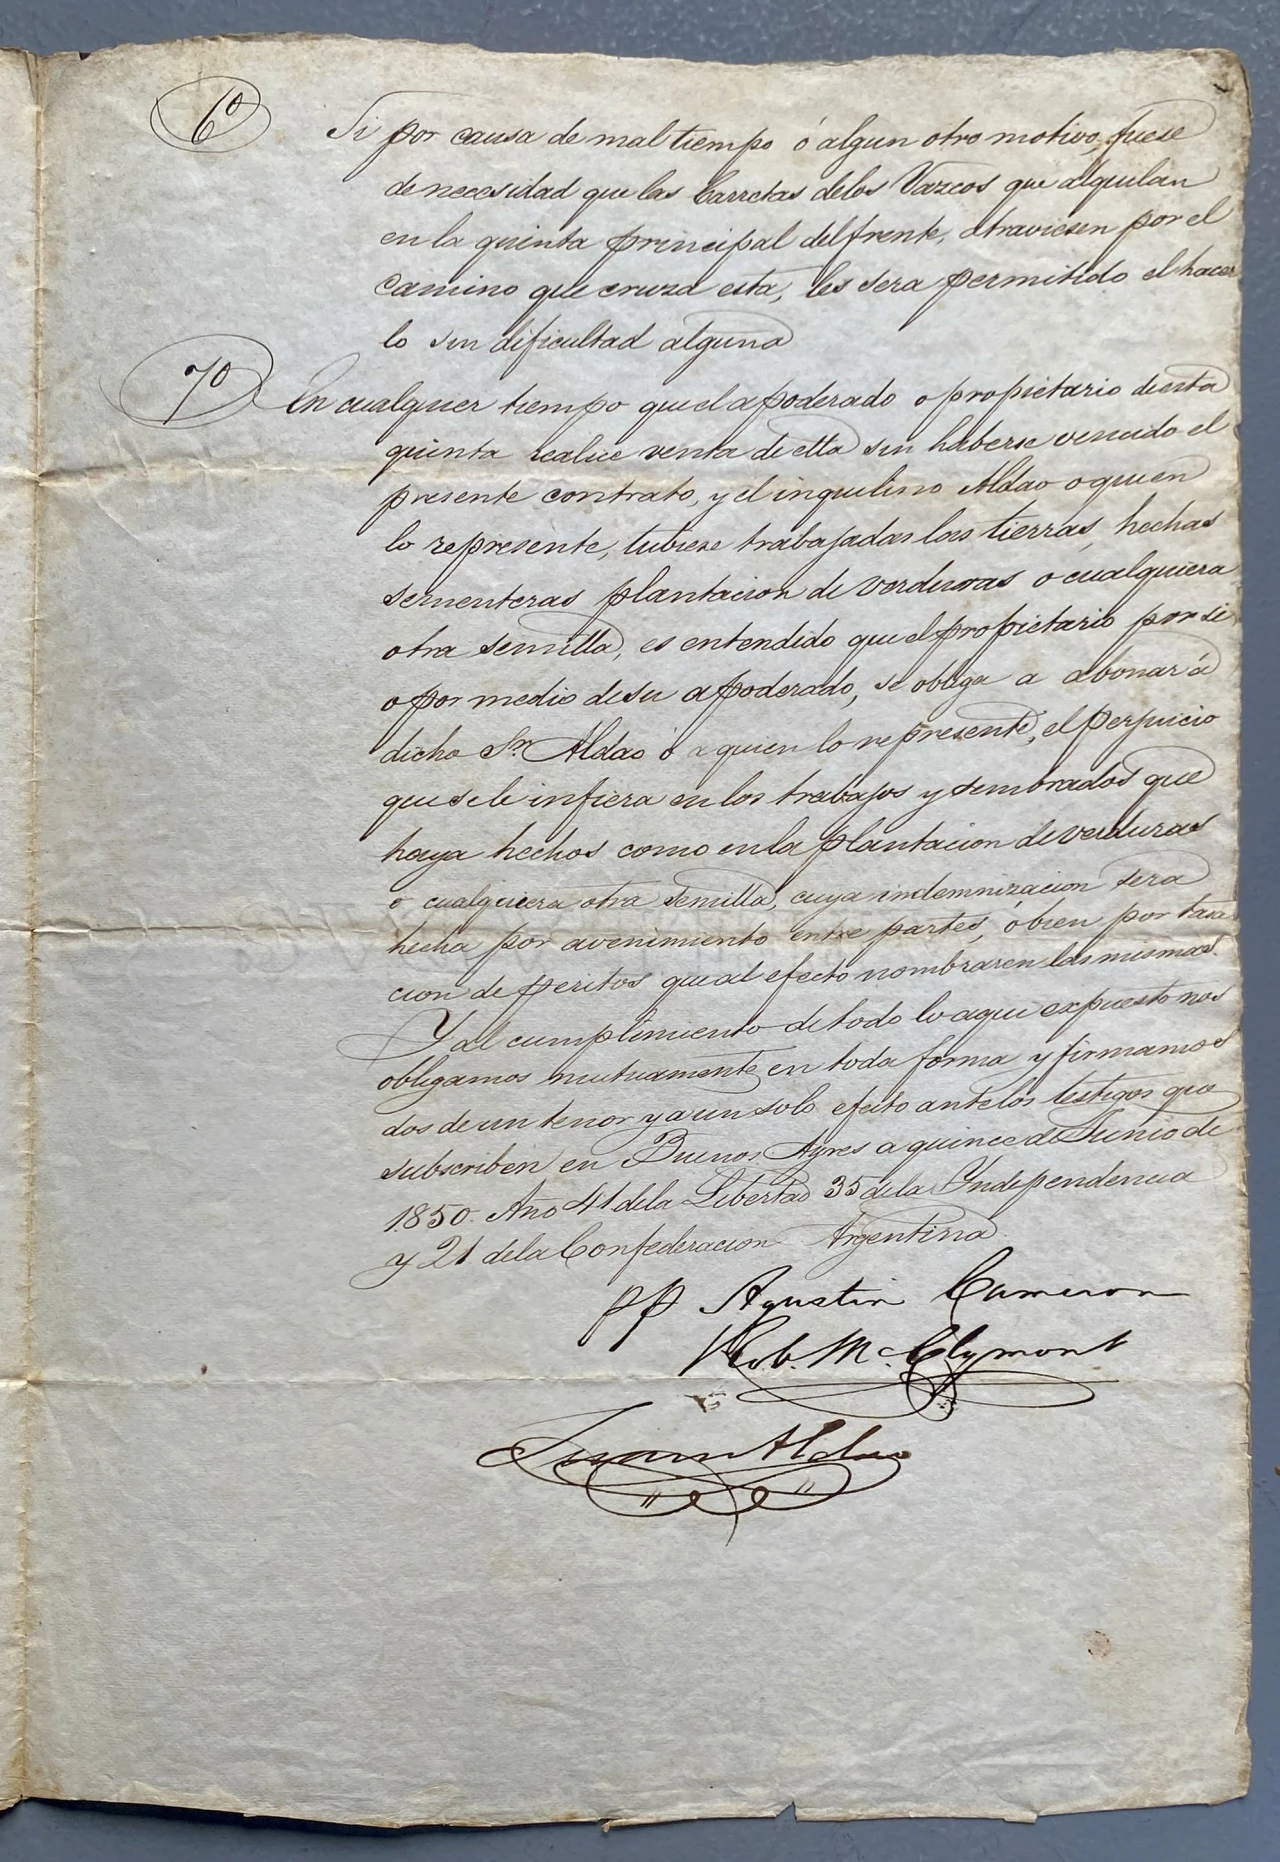 6º Si por causa de mal tiempo ó algun otro motivo, fuese
de necesidad que las Carretas de los Vazcos que alquilan
en la quinta principal del frente, atraviesen por el
camino que cruza esta, les sera permitido el hacer
lo sin dificultad alguna
7º En cualquier tiempo que el apoderado o propietario de esta
quinta realice venta de ella sin haberse vencido el
presente contrato, y el inquilino Aldao o quien
lo represente, tubiese trabajadas las tierras, hechas
sementeras plantacion de verduras o cualquiera
otra semilla, es entendido que el propietario por si
o por medio de su apoderado, se obliga a abonar á
dicho Sr. Aldao ó a quien lo represente, el perjuicio
que se le infiera en los trabajos y sembrados que
haya hechos como en la plantacion de verduras
o cualquiera otra semilla, cuya indemnizacion sera
hecha por avenimiento entre partes, ó bien por tasa
cion de peritos que al efecto nombraren las mismas.
Y al cumplimiento de todo lo aqui expuesto nos
obligamos mutuamente en toda forma y firmamos
dos de un tenor y a un solo efecto ante los testigos que
subscriben en Buenos Ayres a quince de Junio de
1850. Año 41 de la Libertad 35 de la Yndependencia
y 21 de la Confederacion Argentina.
pp Agustin Cameron
Rob. Mc.Clymont
Juan Aldao